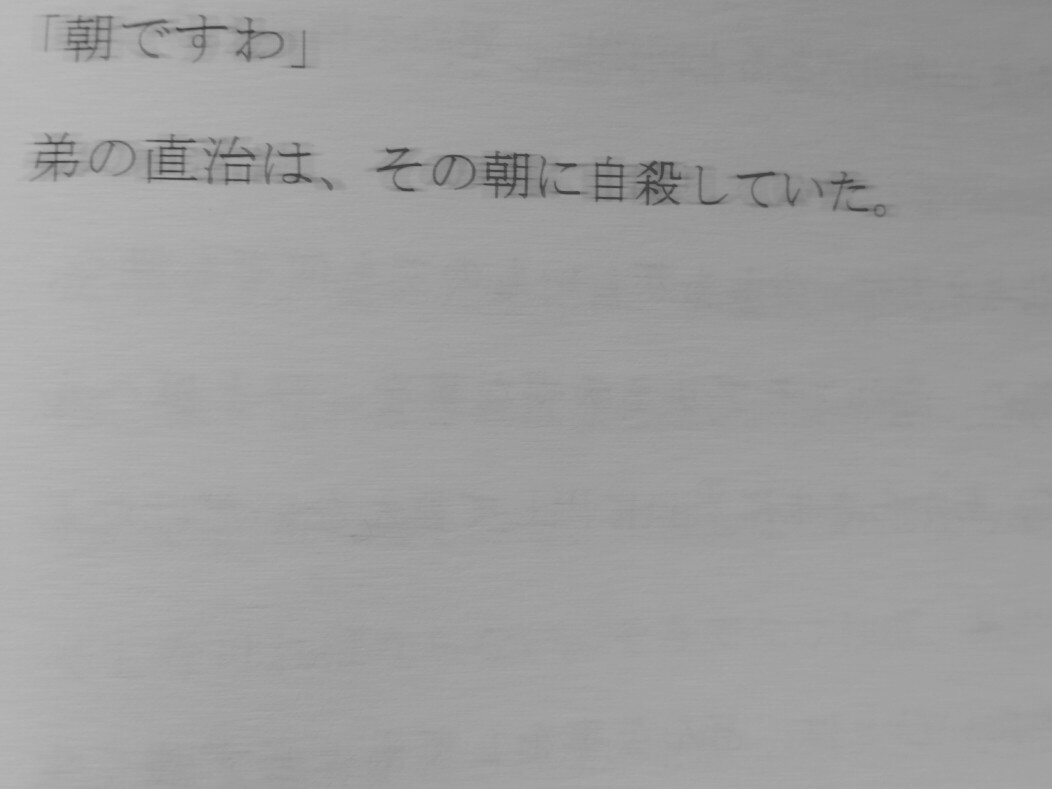 「朝ですわ」
弟の直治は、その朝に自殺していた。